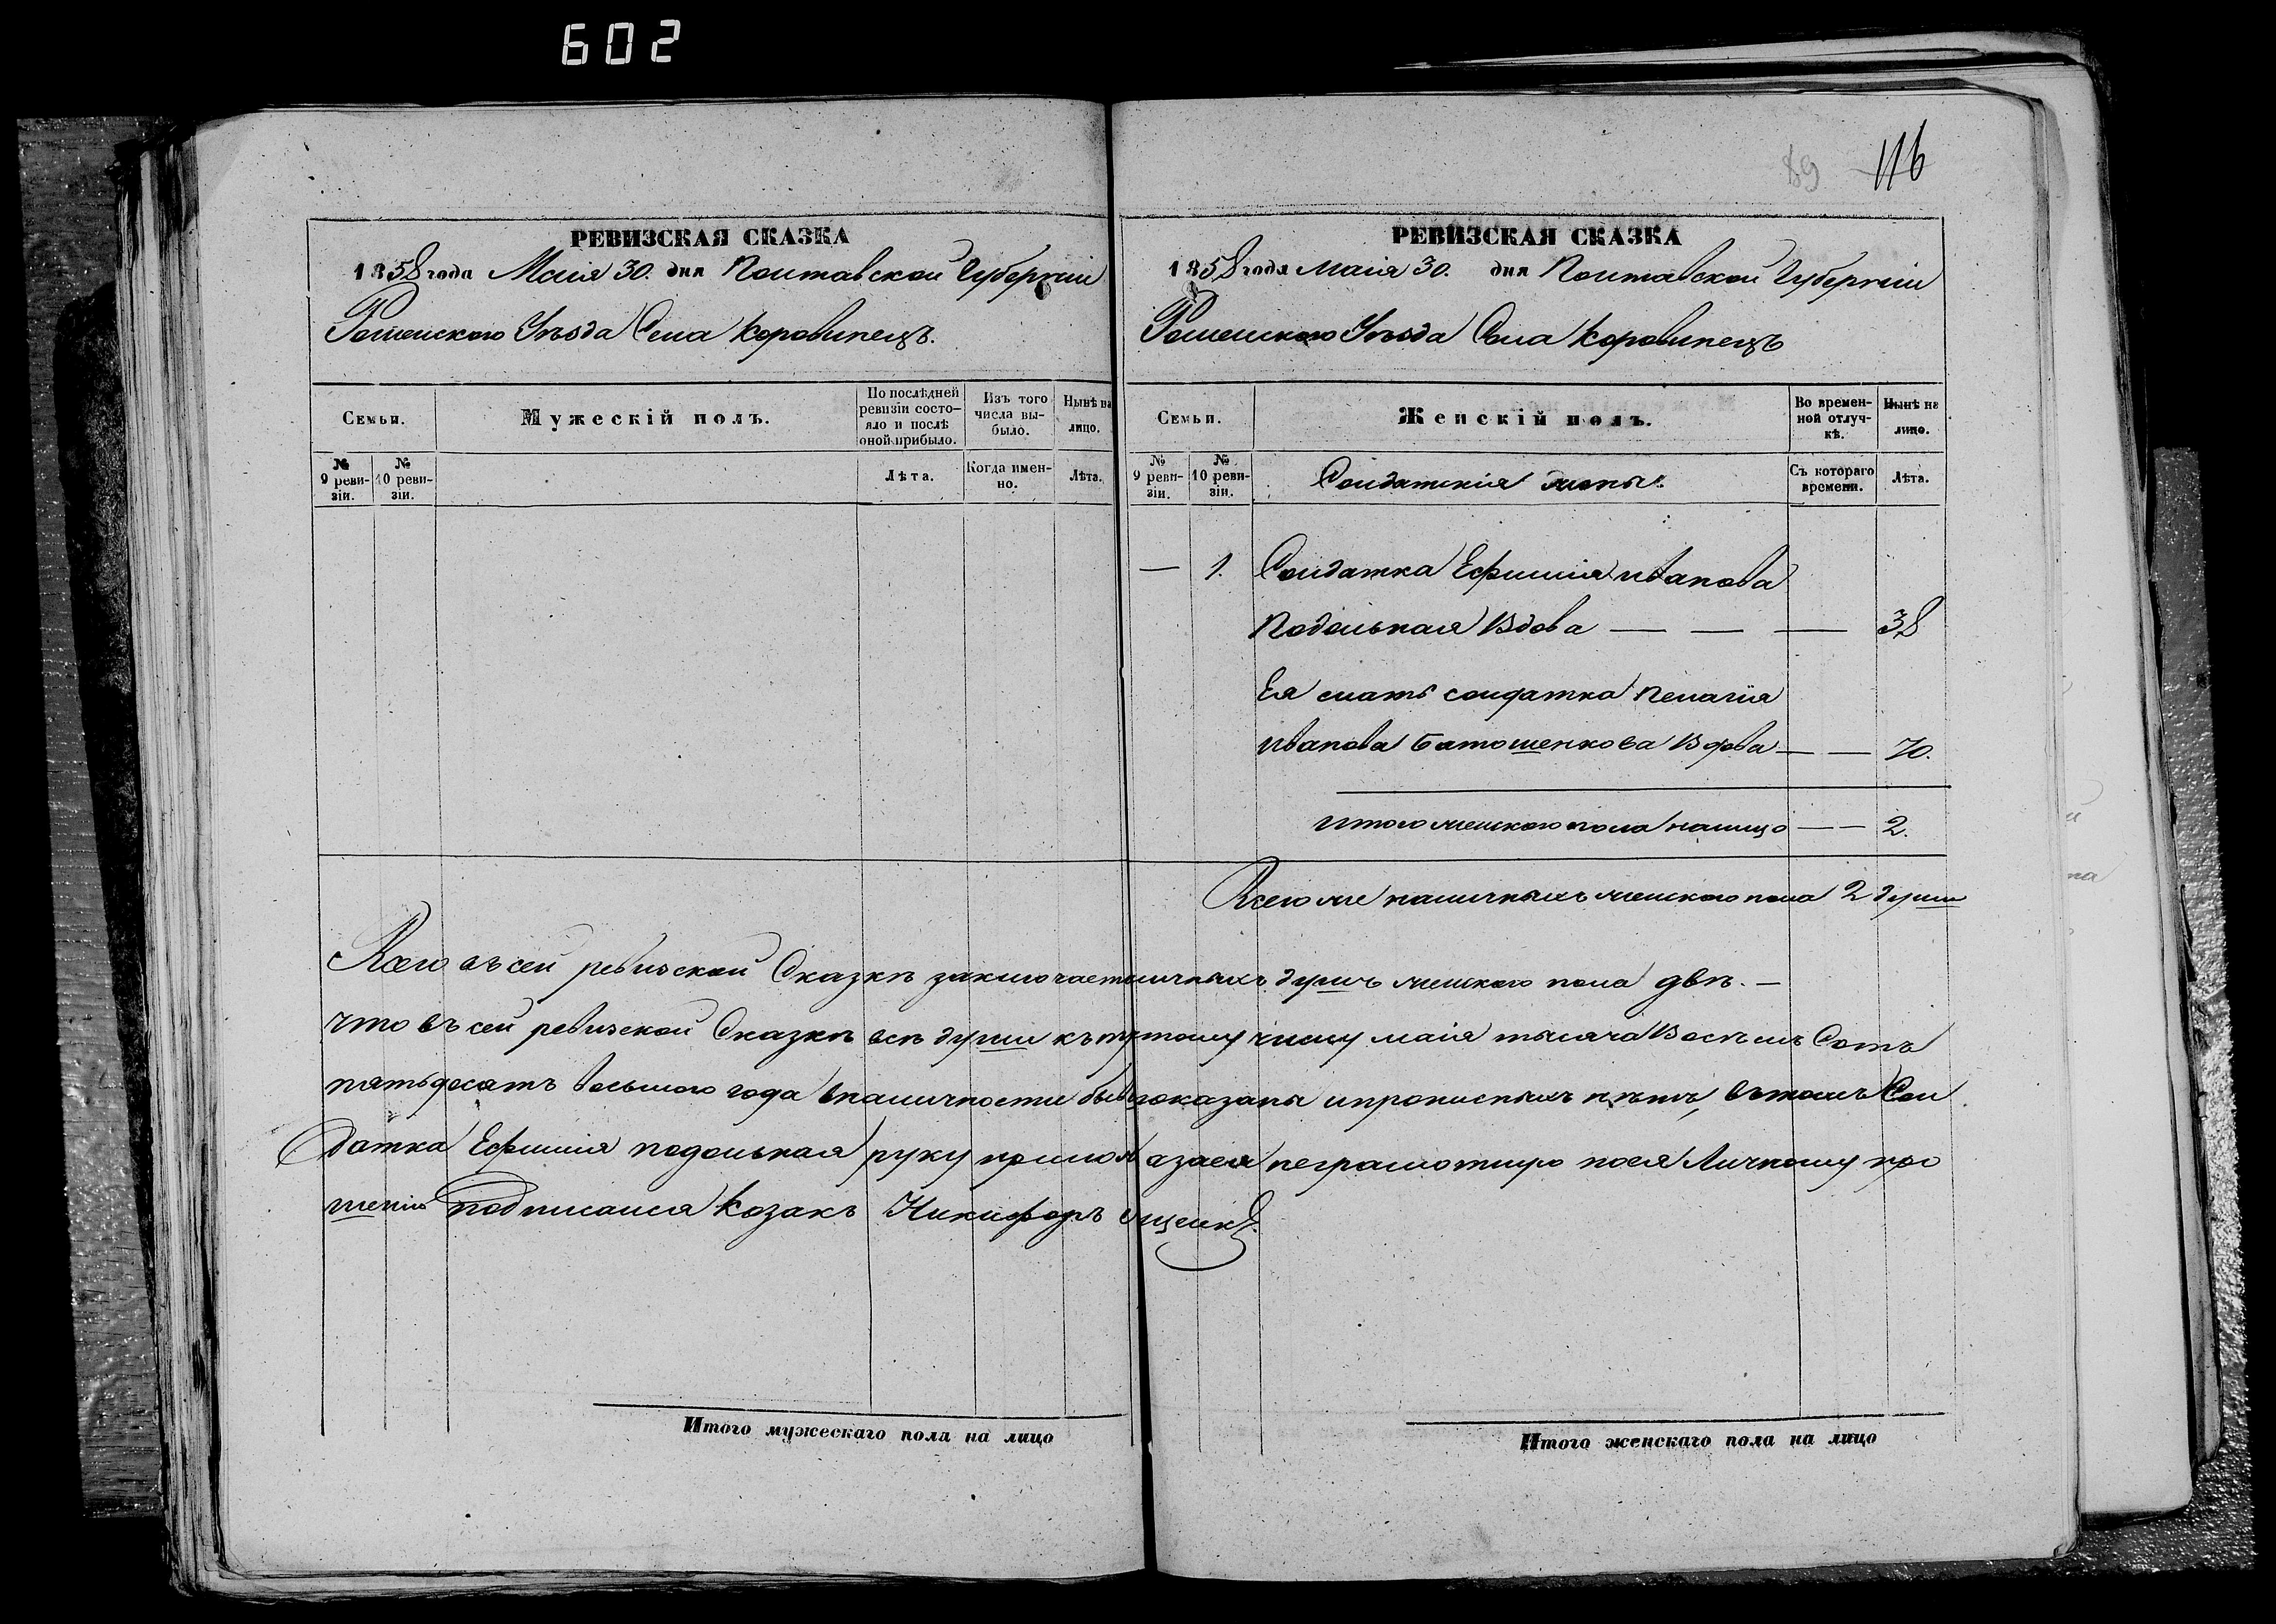 602
89 116
РЕВИЗСКАЯ СКАЗКА
1858 года Маія 30. дня Полтавской Губерніи
Роменского Уѣзда Села Коровинецъ.
Семьи. Мужескій полъ. По послѣдней ревизіи состояло и послѣ оной прибыло. Изъ того числа выбыло. Нынѣ на лицо.
№ 9 ревизіи. № 10 ревизіи. Лѣта. Когда именно. Лѣта.
РЕВИЗСКАЯ СКАЗКА
1858 года Маія 30. дня Полтавской Губерніи
Роменского Уѣзда Села Коровинецъ
Семьи. Женскій полъ. Во временной отлучкѣ. Нынѣ на лицо.
№ 9 ревизіи. № 10 ревизіи. Солдатскія жены. Съ котораго времени. Лѣта.
— 1. Солдатка Ефимія Иванова
Подольная Вдова — — — 38
Ея мать солдатка Пелагія
Иванова Батошенкова Вдова — — 70.
Итого женского пола налицо — — 2.
Всего же наличныхъ женского пола 2 души
Всего въ сей ревизской Сказкѣ заключает личныхъ душъ женского пола двѣ. —
Что въ сей ревизской Сказкѣ всѣ души къ тому числу маія тысяча Восѣмъ Сотъ
пятьдесятъ восьмого года вналичности показаны ипрописныхъ нѣтъ, вътомъ Сол
датка Ефимія Подольная руку неграмотную поея Личному про
шенію подписался Козакъ Никифоръ
Итого мужескаго пола на лицо
Итого женскаго пола на лицо